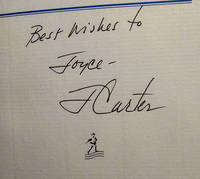 Best Wishes to
Joyce-
J Carter